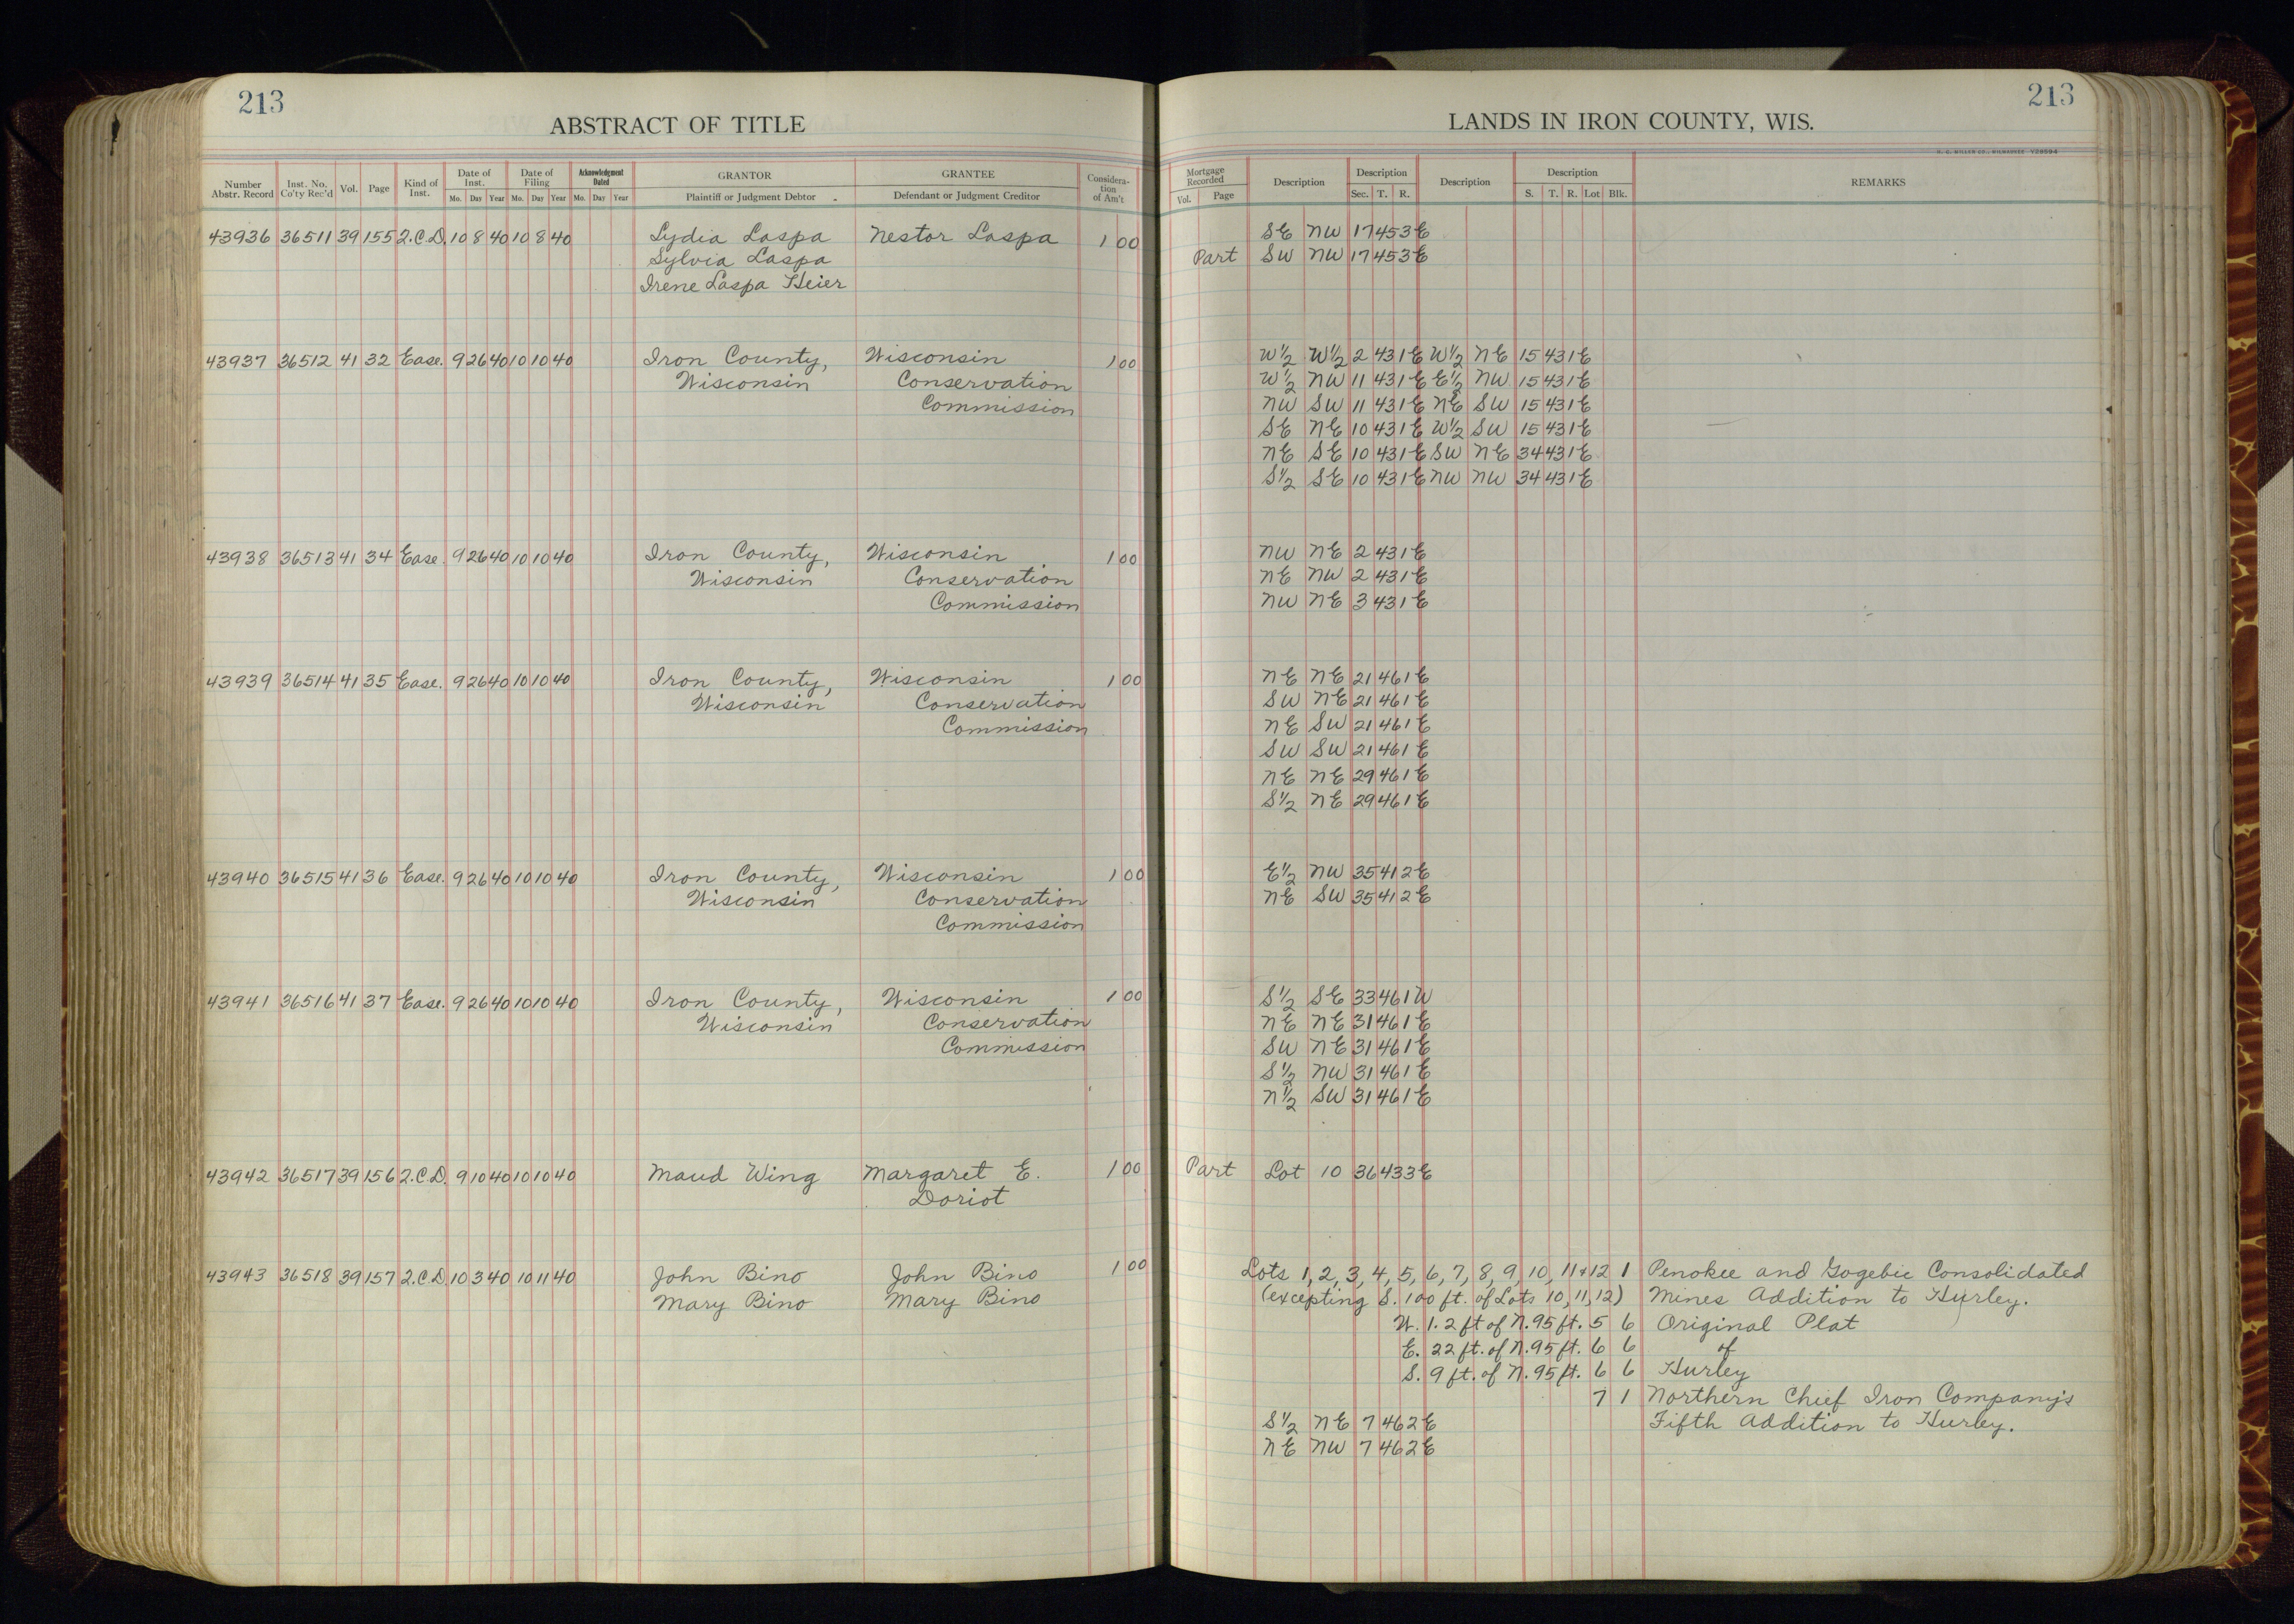 213
ABSTRACT OF TITLE
Number Abstr. Record Inst. No. Co'ty Rec'd Vol. Page Kind of Inst. Date of Inst. Mo. Day Year Date of Filing Mo. Day Year Acknowledgment Dated Mo. Day Year GRANTOR Plaintiff or Judgment Debtor GRANTEE Defendant or Judgment Creditor Consideration of Am't
43936 36511 39 155 2.C.D. 10 8 40 10 8 40 Lydia Laspa Nestor Laspa 1 00
Sylvia Laspa
Irene Laspa Heier
43937 36512 41 32 Ease. 9 26 40 10 10 40 Iron County, Wisconsin 1 00
Wisconsin Conservation
Commission
43938 36513 41 34 Ease. 9 26 40 10 10 40 Iron County, Wisconsin 1 00
Wisconsin Conservation
Commission
43939 36514 41 35 Ease. 9 26 40 10 10 40 Iron County, Wisconsin 1 00
Wisconsin Conservation
Commission
43940 36515 41 36 Ease. 9 26 40 10 10 40 Iron County, Wisconsin 1 00
Wisconsin Conservation
Commission
43941 36516 41 37 Ease. 9 26 40 10 10 40 Iron County, Wisconsin 1 00
Wisconsin Conservation
Commission
43942 36517 39 156 2.C.D. 9 10 40 10 10 40 Maud Wing Margaret E. 1 00
Doriot
43943 36518 39 157 2.C.D. 10 3 40 10 11 40 John Bino John Bino 1 00
Mary Bino Mary Bino
213
LANDS IN IRON COUNTY, WIS.
H. C. MILLER CO., MILWAUKEE Y29594
Mortgage Recorded Vol. Page Description Description Sec. T. R. Description Description S. T. R. Lot Blk. REMARKS
SE NW 17 45 3E
Part SW NW 17 45 3E
W½ W½ 2 43 1E W½ NE 15 43 1E
W½ NW 11 43 1E E½ NW 15 43 1E
NW SW 11 43 1E NE SW 15 43 1E
SE NE 10 43 1E W½ SW 15 43 1E
NE SE 10 43 1E SW NE 34 43 1E
S½ SE 10 43 1E NW NW 34 43 1E
NW NE 2 43 1E
NE NW 2 43 1E
NW NE 3 43 1E
NE NE 21 46 1E
SW NE 21 46 1E
NE SW 21 46 1E
SW SW 21 46 1E
NE NE 29 46 1E
S½ NE 29 46 1E
E½ NW 35 41 2E
NE SW 35 41 2E
S½ SE 33 46 1W
NE NE 31 46 1E
SW NE 31 46 1E
S½ NW 31 46 1E
N½ SW 31 46 1E
Part Lot 10 36 43 3E
Lots 1, 2, 3, 4, 5, 6, 7, 8, 9, 10, 11 + 12 1 Penokee and Gogebic Consolidated
(excepting S. 100 ft. of Lots 10, 11, 12) Mines Addition to Hurley.
W. 1.2 ft of N. 95 ft. 5 6 Original Plat
E. 22 ft. of N. 95 ft. 6 6 of
S. 9 ft. of N. 95 ft. 6 6 Hurley
7 1 Northern Chief Iron Company's
S½ NE 7 46 2E Fifth Addition to Hurley.
NE NW 7 46 2E